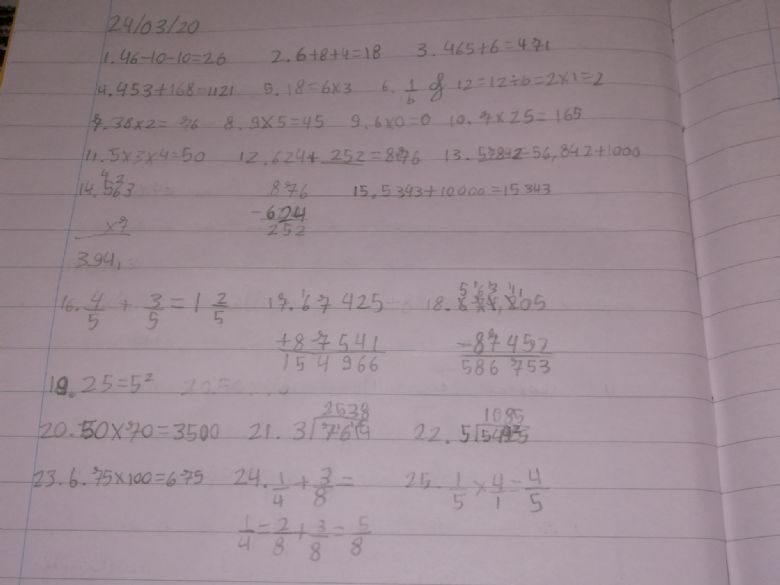 24/03/20
1. 46-10-10=26 2. 6+8+4=18 3. 465+6=471
4. 953+168=1121 5. 18=6x3 6. 1/6 of 12=12÷6=2x1=2
7. 38x2=76 8. 9x5=45 9. 6x0=0 10. 7x25=165
11. 5x3x4=50 12. 624+ 252=876 13. 57842=56,842+1000
4 2
14. 563 876 15. 5343+10000=15343
x7 -624
252
394,
16. 4/5 + 3/5 = 1 2/5 17. 67 425 18. 205
+87541 -87452
154 966 586 753
19. 25=5²
20. 50x70=3500 2538 1085
21. 3 22. 5
23. 6.75x100=675 24. 1/4 + 3/8 = 25. 1/5 x 4/1 = 4/5
1/4 = 2/8 + 3/8 = 5/8